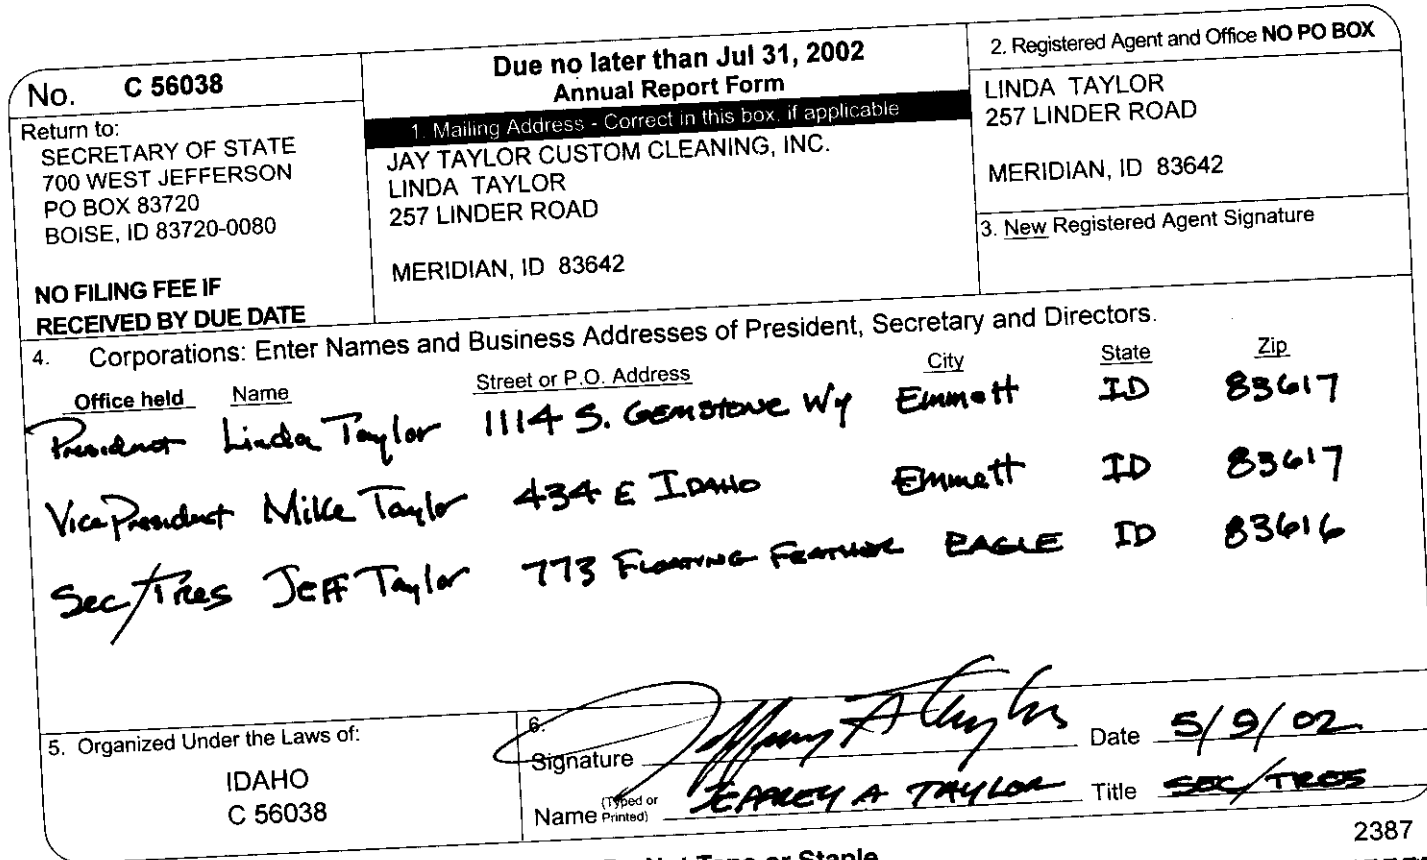 No. C 56038
Return to:
SECRETARY OF STATE
700 WEST JEFFERSON
PO BOX 83720
BOISE, ID 83720-0080
NO FILING FEE IF
RECEIVED BY DUE DATE
Due no later than Jul 31, 2002
Annual Report Form
1. Mailing Address - Correct in this box, if applicable
JAY TAYLOR CUSTOM CLEANING, INC.
LINDA TAYLOR
257 LINDER ROAD
MERIDIAN, ID 83642
2. Registered Agent and Office NO PO BOX
LINDA TAYLOR
257 LINDER ROAD
MERIDIAN, ID 83642
3. New Registered Agent Signature
4. Corporations: Enter Names and Business Addresses of President, Secretary and Directors.
Office held Name Street or P.O. Address City State Zip
President Linda Taylor 1114 S. GEMSTONE Wy Emmett ID 83617
Vice President Mike Taylor 434 E IDAHO Emmett ID 83617
Sec/Tres JEFF Taylor 773 FLOATING FEATHER EAGLE ID 83616
5. Organized Under the Laws of:
IDAHO
C 56038
6.
Signature Jeffrey A Taylor Date 5/9/02
Name (Typed or Printed) JEFFREY A TAYLOR Title SEC/TRES
2387
Do Not Tape or Staple